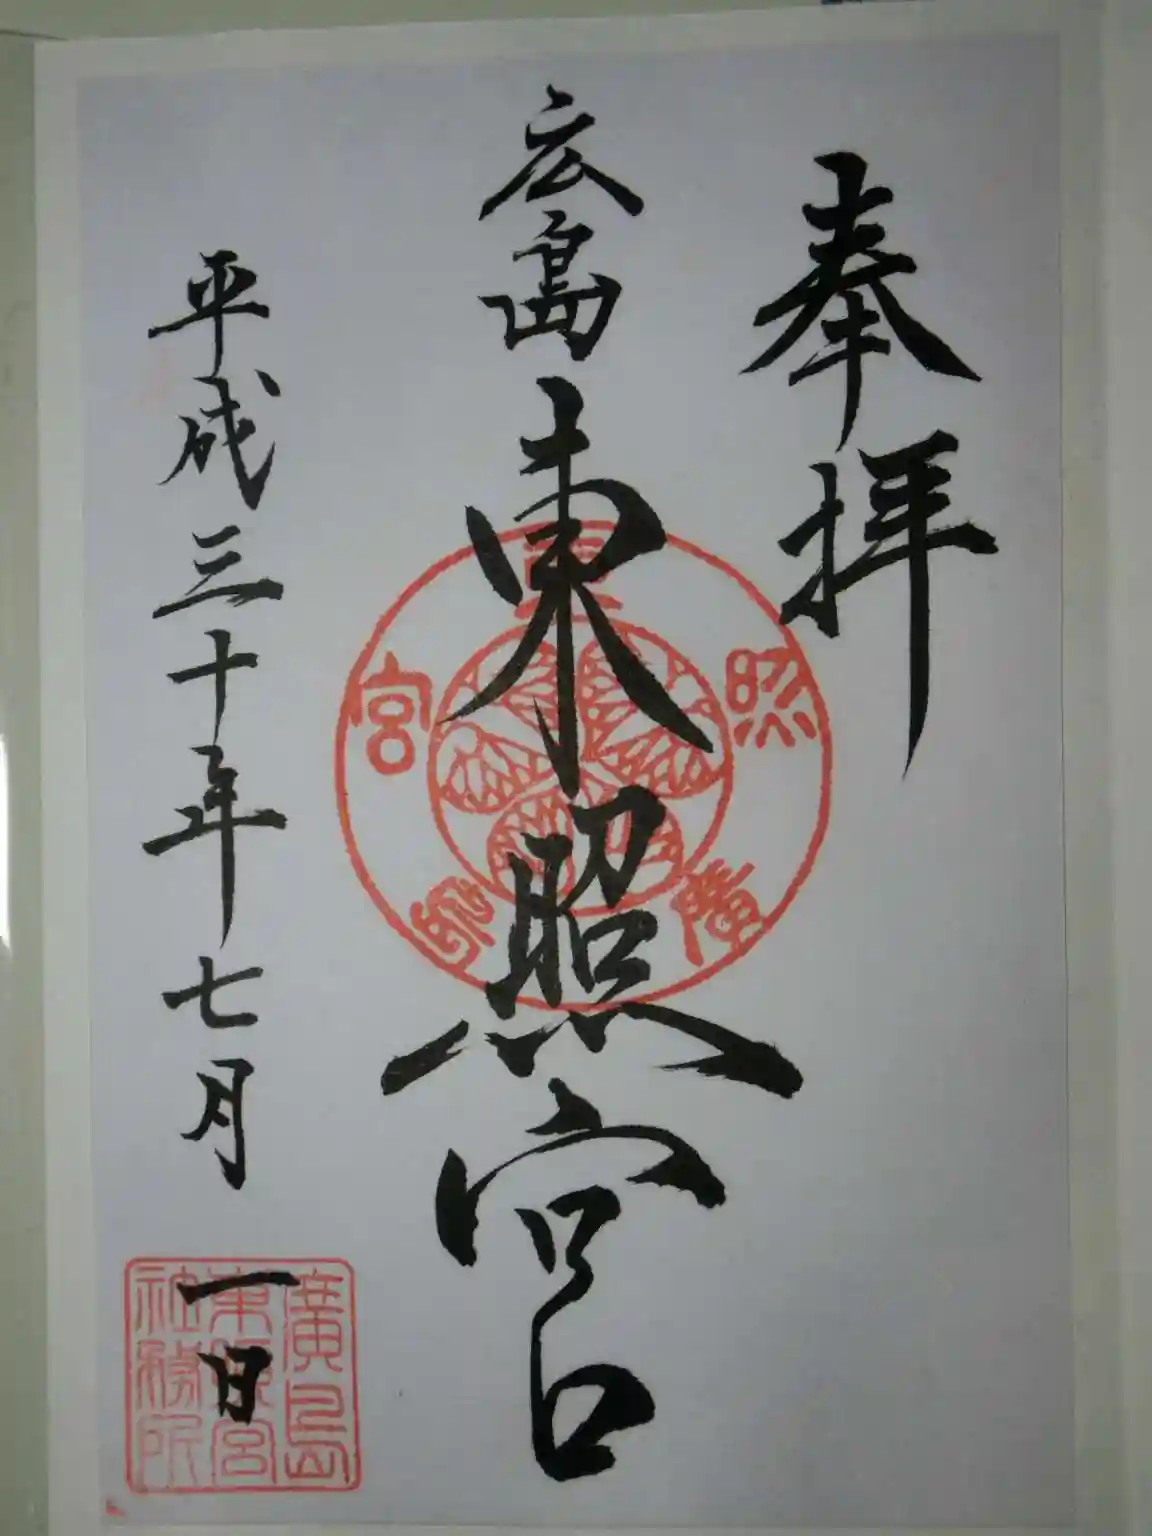 奉拝
広島東照宮
平成三十年七月一日
東照宮廣島
廣島
東照宮
社務所